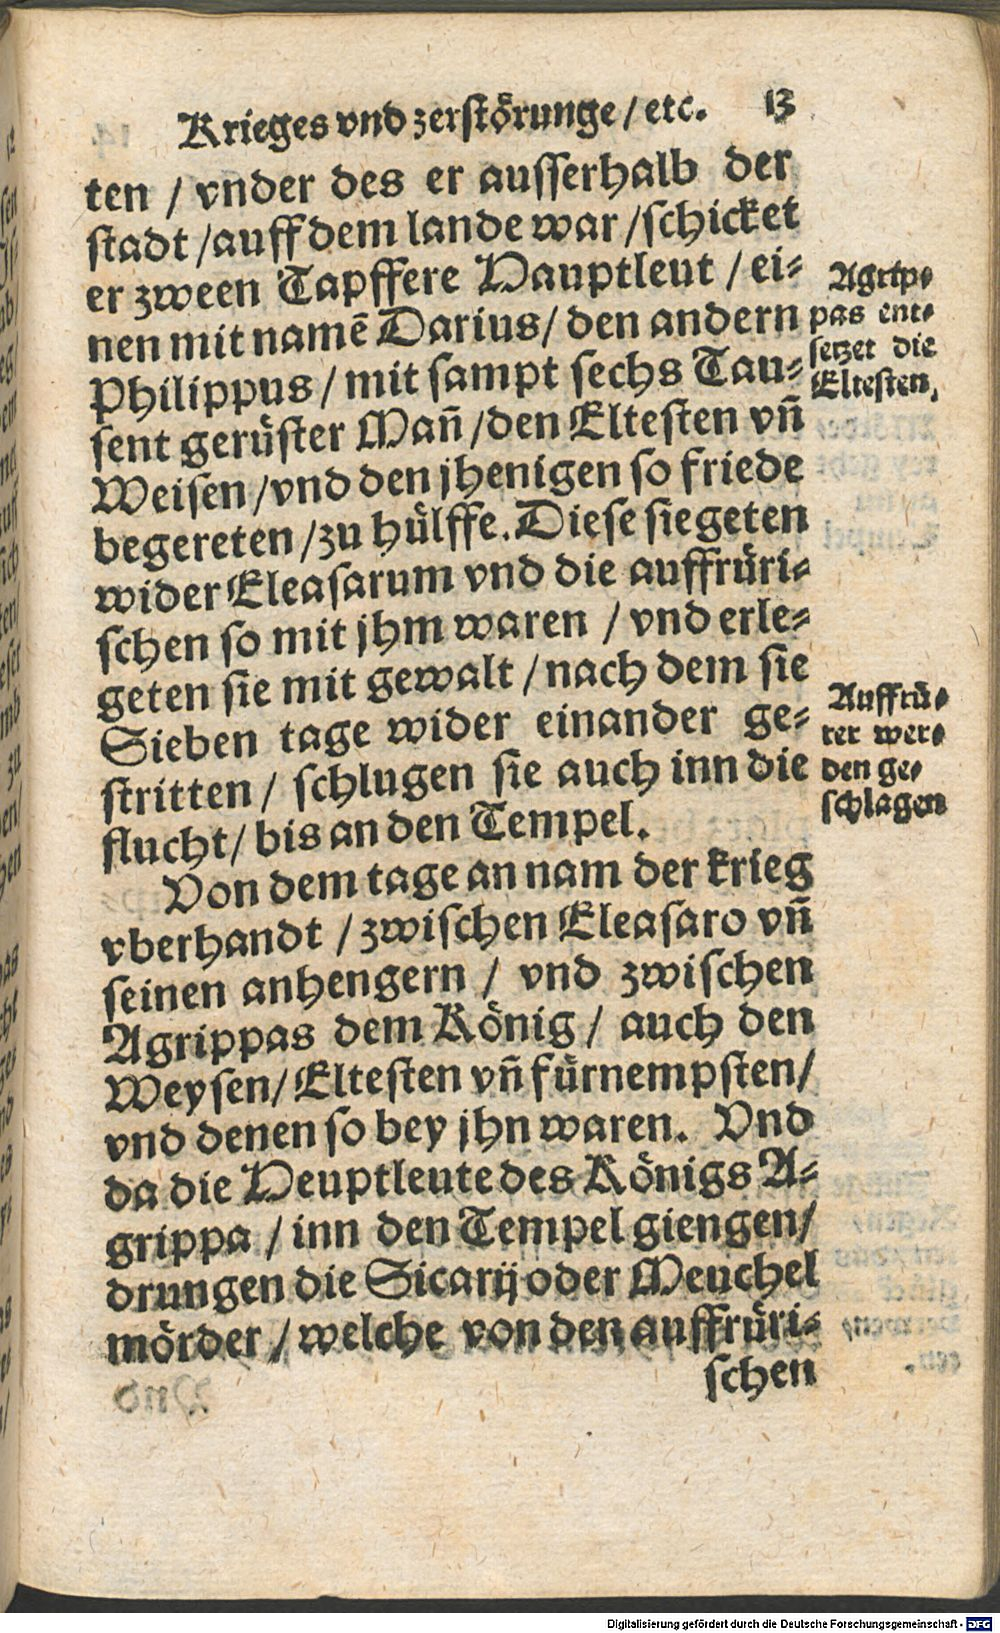 Krieges vnd zerstörunge / etc. 13
ten / vnder des er ausserhalb der
stadt / auff dem lande war / schicket
er zween Tapffere Hauptleut / ei-
nen mit namē Darius / den andern
Philippus / mit sampt sechs Tau-
sent gerüster Mañ / den Eltesten vñ
Weisen / vnd den jhenigen so friede
begereten / zu hülffe. Diese siegeten
wider Eleasarum vnd die auffrüri-
schen so mit jhm waren / vnd erle-
geten sie mit gewalt / nach dem sie
Sieben tage wider einander ge-
stritten / schlugen sie auch inn die
flucht / bis an den Tempel.
Von dem tage an nam der krieg
vberhandt / zwischen Eleasaro vñ
seinen anhengern / vnd zwischen
Agrippas dem König / auch den
Weysen / Eltesten vñ fürnempsten /
vnd denen so bey jhn waren. Vnd
da die Heuptleute des Königs A-
grippa / inn den Tempel giengen /
drungen die Sicarij oder Meuchel
mörder / welche von den auffrüri-
schen
Agrip-
pas ent-
setzet die
Eltesten.
Auffrü-
rer wer-
den ge-
schlagen
Digitalisierung gefördert durch die Deutsche Forschungsgemeinschaft - DFG